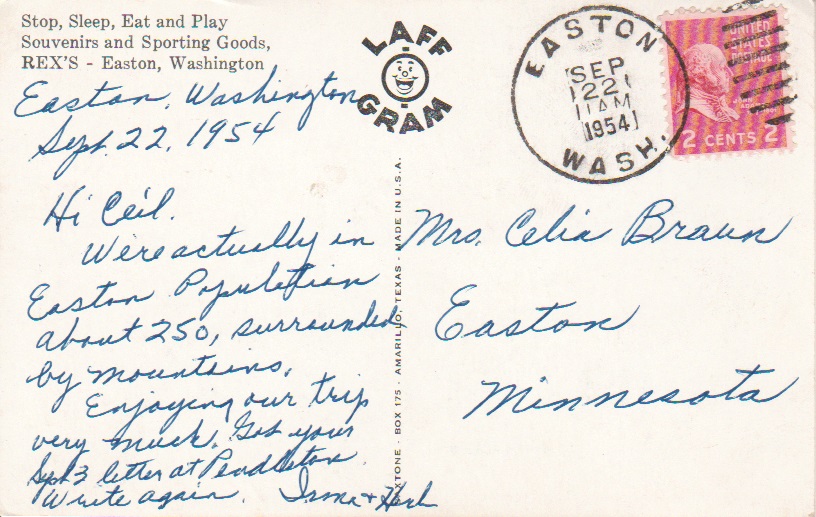 Stop, Sleep, Eat and Play
Souvenirs and Sporting Goods,
REX'S - Easton, Washington
LAFF
GRAM
EASTON
SEP
22
11 AM
1954
WASH.
UNITED
STATES
POSTAGE
2 CENTS 2
Easton, Washington
Sept. 22, 1954
Hi Ceil.
Were actually in
Easton Population
about 250, surrounded
by mountains.
Enjoying our trip
very much. Got your
Sept 3 letter at Pendleton
Write again. Irma + Herb
XTONE - BOX 175 - AMARILLO, TEXAS - MADE IN U.S.A.
Mrs. Celia Braun
Easton
Minnesota